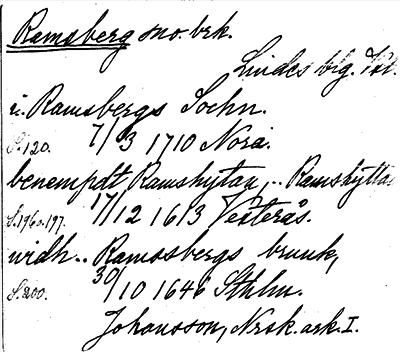 Ramsberg sno. brk.
Lindes blg. Vsl.
i. Ramsbergs Sochn.
S. 120. 7/3 1710 Nora.
benempdt Ramshytan, .. Ramshytta
S. 196 o. 197. 17/12 1613 Vesterås.
widh .. Ramssbergs bruuk,
S. 200. 30/10 1646 Sthlm.
Johansson, Nrsk. ark. I.